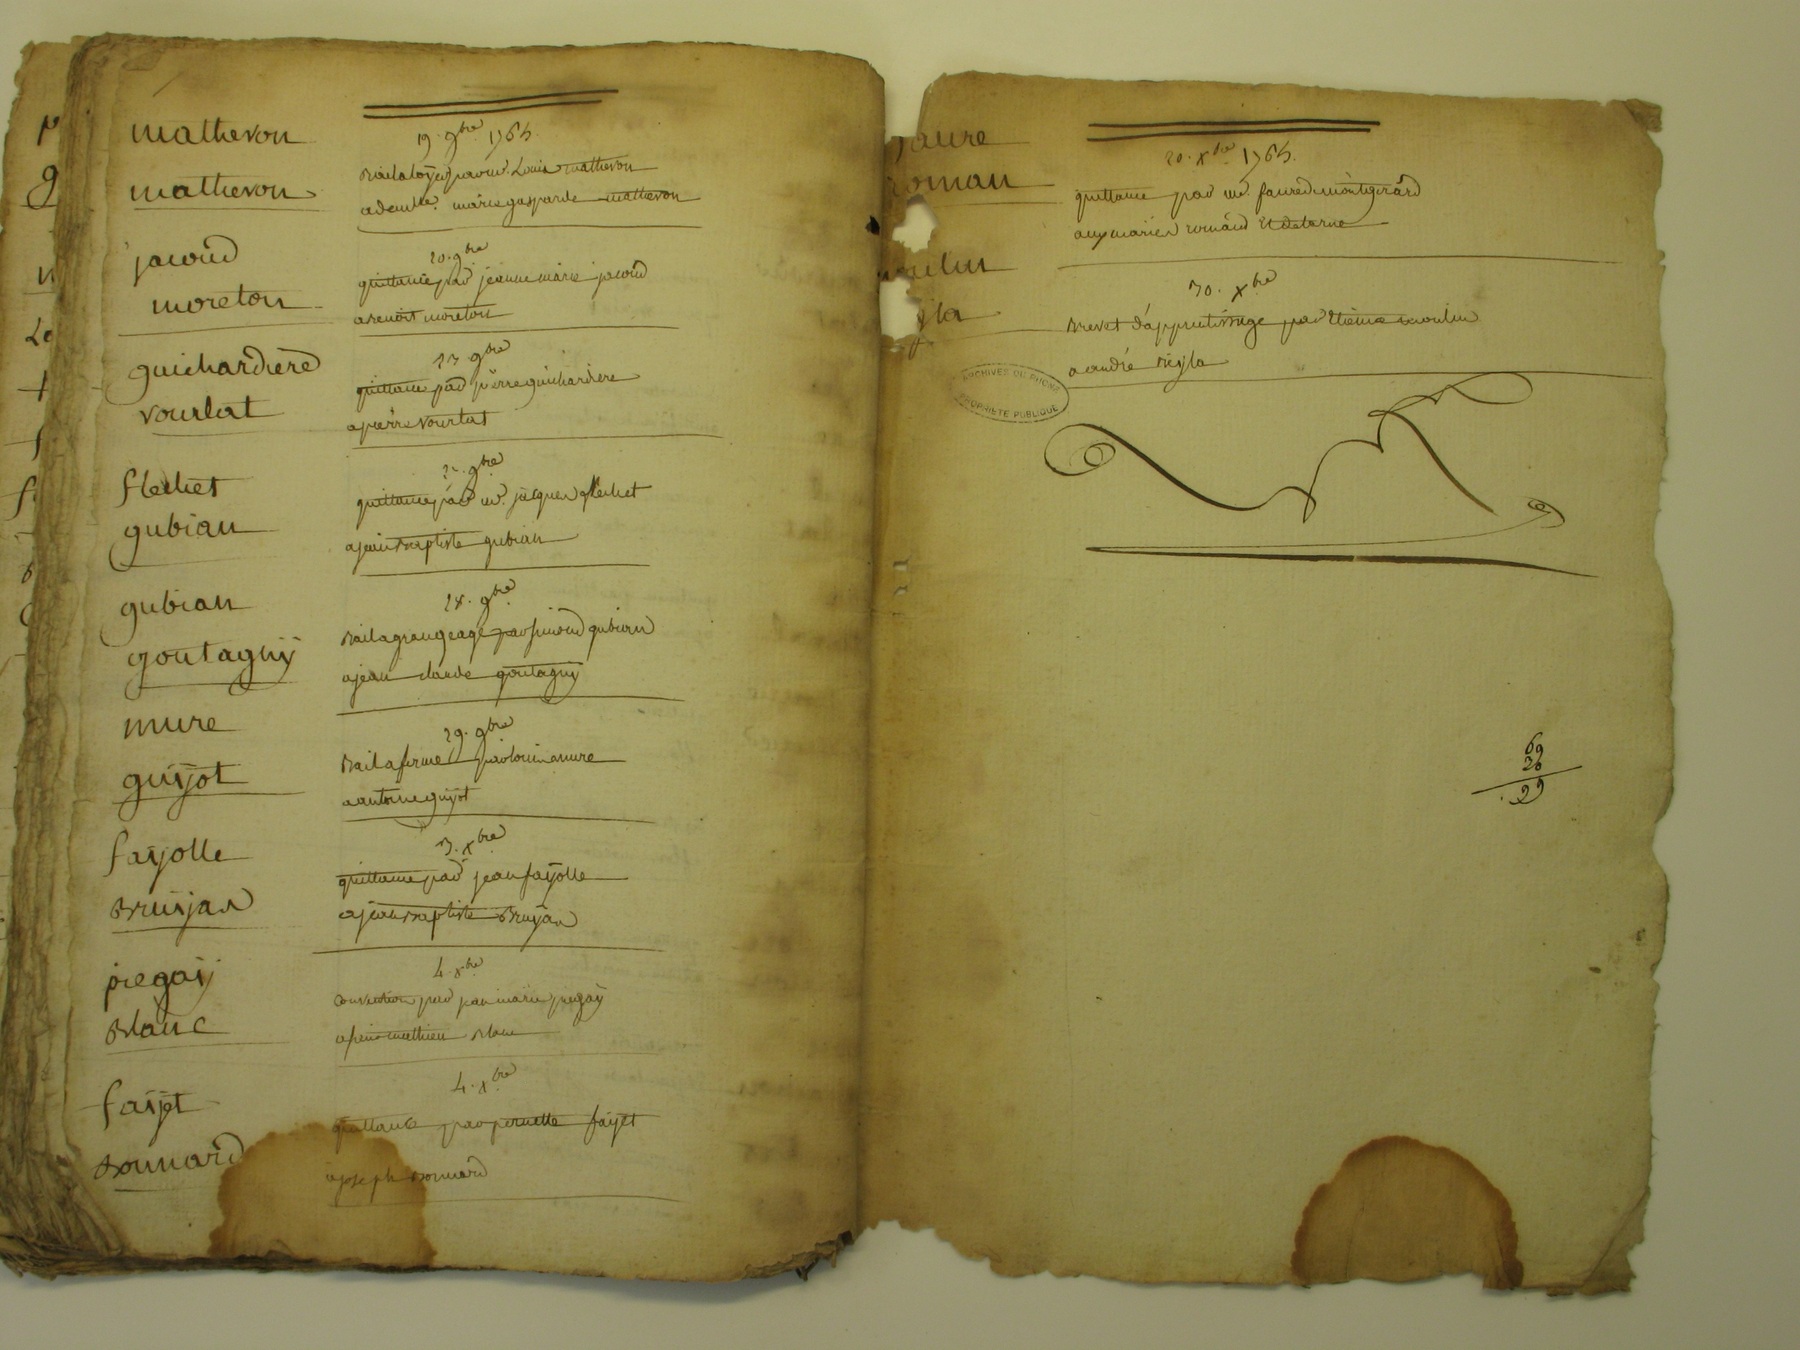 matheron
matheron
19. 9bre 1764.
Bail a loyer par mr. Louis matheron
a demlle. marie gasparde matheron
jacoud
moreton
20. 9bre
quittance par jeanne marie jacoud
a benoit moreton
guichardiere
vourlat
23. 9bre
quittance par pierre guichardiere
a pierre vourlat
flechet
gubian
9bre
quittance par mr. jacques flechet
a jean Baptiste gubian
gubian
goutagny
28. 9bre
Bail a grangeage par simond gubian
a jean claude goutagny
mure
guyot
29. 9bre
Bail a ferme par louis mure
a antoine guyot
fayolle
Bruyas
3. xbre
quittance par jean fayolle
a jean Baptiste Bruyas
pregay
Blanc
4. xbre
convention par jean marie pregay
a mathieu Blanc
fayet
Bonnard
4. xbre
quittance par pernette fayet
a joseph Bonnard
faure
roman
20. xbre 1764.
quittance par mr. faure de montgirard
aux mariés romand et delorme
moulin
30. xbre
Brevet d'apprentissage par etienne moulin
a andré
ARCHIVES DU RHONE
PROPRIETE PUBLIQUE
69
20
29